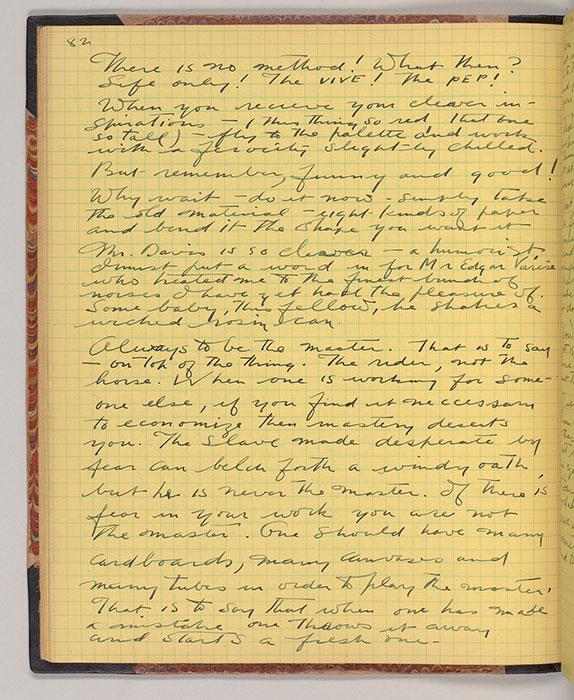 82
There is no method! What then?
Life only! The VIVE! The PEP!
When you receive your clever in-
spirations - (this thing so red that one
so tall) - fly to the palette and work
with a ferocity slightly chilled.
But remember, funny and good!
Why wait - do it now - simply take
the old material - eight kinds of paper
and bend it the shape you want it
Mr. Davis is so clever - a humorist,
I must put a word in for Mr Edgar Varese
who treated me to the finest bunch of
noises I have yet had the pleasure of.
Some baby, this fellow, he shakes a
wicked rosin can.
Always to be the master. That is to say
- on top of the thing. The rider, not the
horse. When one is working for some-
one else, if you find it neccessary
to economize then mastery deserts
you. The slave made desperate by
fear can belch forth a windy oath,
but he is never the master. If there is
fear in your work you are not
the master. One should have many
cardboards, many canvases and
many tubes in order to play the master.
That is to say that when one has made
a mistake one throws it away
and starts a fresh one -